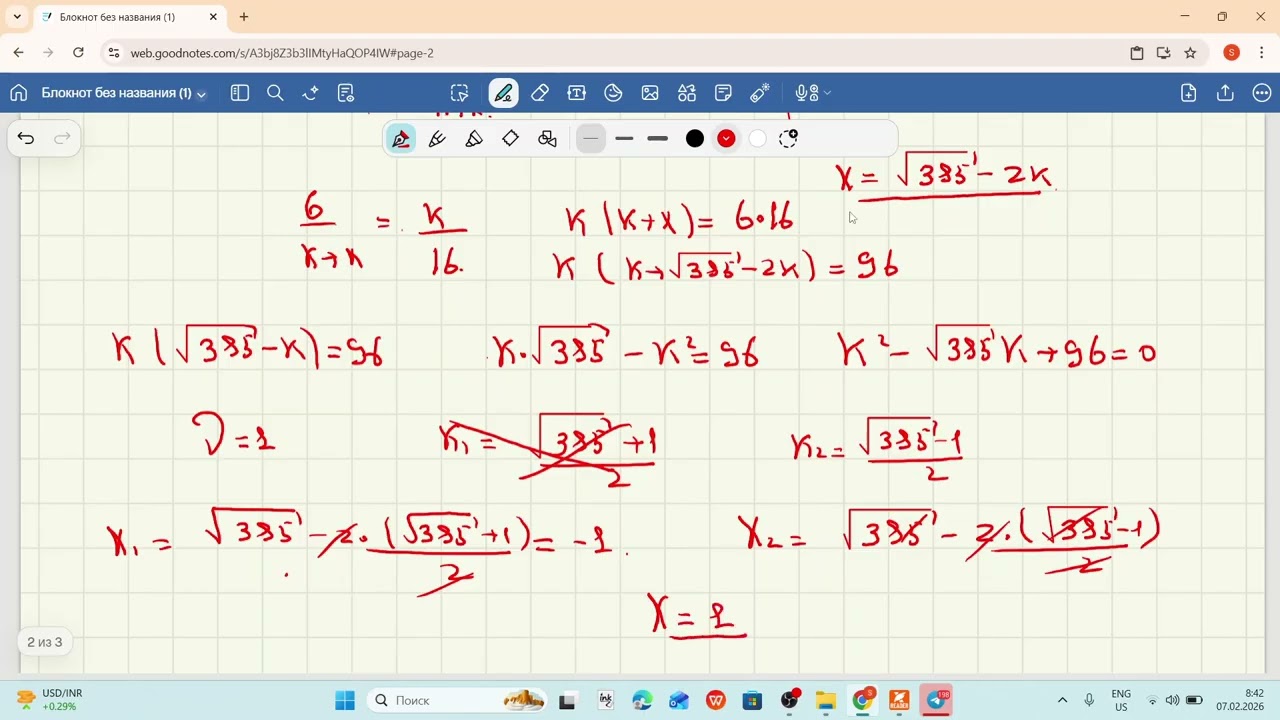 Блокнот без названия (1)
web.goodnotes.com/s/A3bj8Z3b3lIMtyHaQOP4lW#page-2
S
Блокнот без названия (1)
x = √385 - 2k
6/(k+x) = k/16.
k(k+x) = 6·16
k(k+√385-2k) = 96
k(√385-k)=96
k·√385 - k²=96
k² - √385 k + 96 = 0
D=1
k₁ = (√385+1)/2
k₂ = (√385-1)/2
x₁ = √385 - 2·(√385+1)/2 = -1.
x₂ = √385 - 2·(√385-1)/2
x = 1
2 из 3
USD/INR
+0.29%
Поиск
ink
READER
198
ENG
US
8:42
07.02.2026